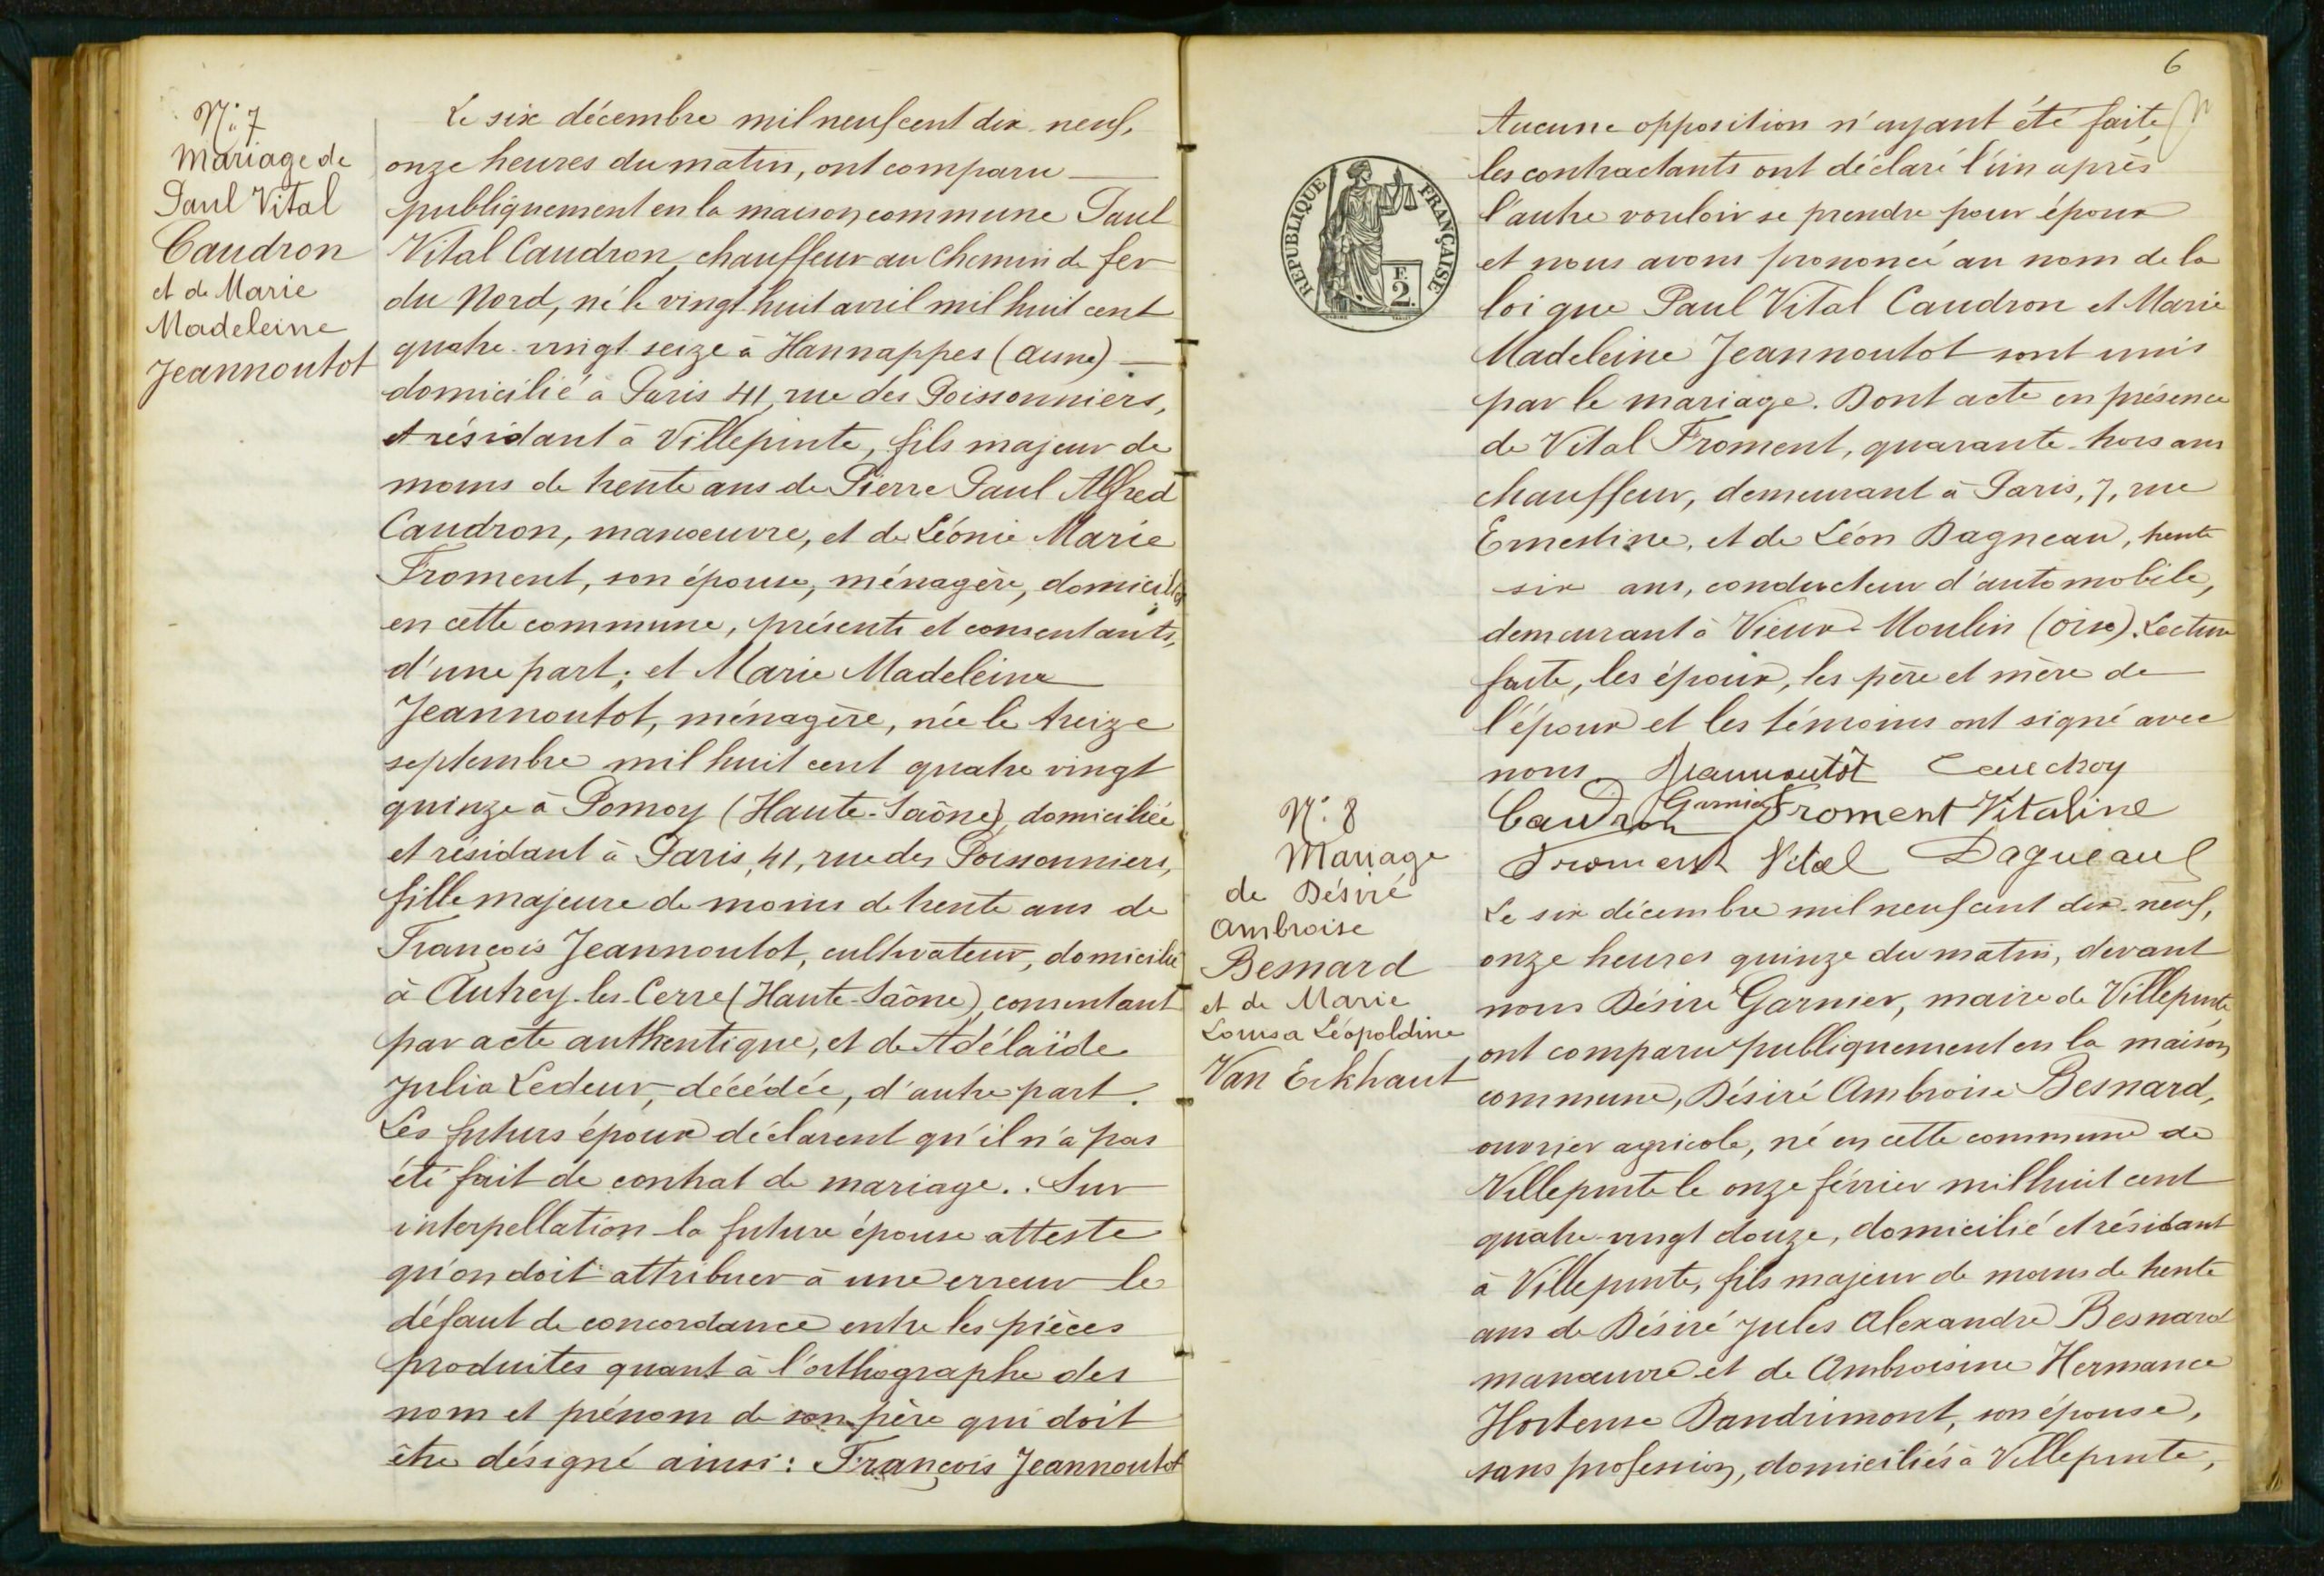 N° 7
Mariage de
Paul Vital
Caudron
et de Marie
Madeleine
Jeannoutot
Le six décembre mil neuf cent dix-neuf,
onze heures du matin, ont comparu
publiquement en la maison commune Paul
Vital Caudron, chauffeur au Chemin de fer
du Nord, né le vingt-huit avril mil huit cent
quatre-vingt seize à Hannappes (Aisne)
domicilié à Paris 41, rue des Poissonniers,
et résidant à Villepinte, fils majeur de
moins de trente ans de Pierre Paul Alfred
Caudron, manoeuvre, et de Léonie Marie
Froment, son épouse, ménagère, domiciliés
en cette commune, présents et consentants,
d'une part; et Marie Madeleine
Jeannoutot, ménagère, née le treize
septembre mil huit cent quatre vingt
quinze à Pomoy (Haute-Saône), domiciliée
et résidant à Paris, 41, rue des Poissonniers,
fille majeure de moins de trente ans de
François Jeannoutot, cultivateur, domicilié
à Autrey-les-Cerre (Haute-Saône), consentant
par acte authentique, et de Adélaïde
Julia Ledeur, décédée, d'autre part.
Les futurs époux déclarent qu'il n'a pas
été fait de contrat de mariage.. Sur
interpellation la future épouse atteste
qu'on doit attribuer à une erreur le
défaut de concordance entre les pièces
produites quant à l'orthographe des
nom et prénom de son père qui doit
être désigné ainsi: François Jeannoutot
6
Aucune opposition n'ayant été faite,
les contractants ont déclaré l'un après
l'autre vouloir se prendre pour époux
et nous avons prononcé au nom de la
loi que Paul Vital Caudron et Marie
Madeleine Jeannoutot sont unis
par le mariage. Dont acte en présence
de Vital Froment, quarante-trois ans
chauffeur, demeurant à Paris, 7, rue
Ernestine, et de Léon Dagneau, trente
six ans, conducteur d'automobile,
demeurant à Vieux-Moulin (Oise). Lecture
faite, les époux, les père et mère de
l'époux et les témoins ont signé avec
nous. Jeannoutôt
Caudron Garnier Froment Vitaline
Froment Vital Dagneau
RÉPUBLIQUE FRANÇAISE
F.
2.
N° 8
Mariage
de Désiré
Ambroise
Besnard
et de Marie
Louisa Léopoldine
Van Eckhaut
Le six décembre mil neuf cent dix-neuf,
onze heures quinze du matin, devant
nous Désiré Garnier, maire de Villepinte,
ont comparu publiquement en la maison
commune, Désiré Ambroise Besnard,
ouvrier agricole, né en cette commune de
Villepinte le onze février mil huit cent
quatre-vingt douze, domicilié et résidant
à Villepinte, fils majeur de moins de trente
ans de Désiré Jules Alexandre Besnard
manoeuvre et de Ambroisine Hermance
Hortense Dandrimont, son épouse,
sans profession, domiciliés à Villepinte,